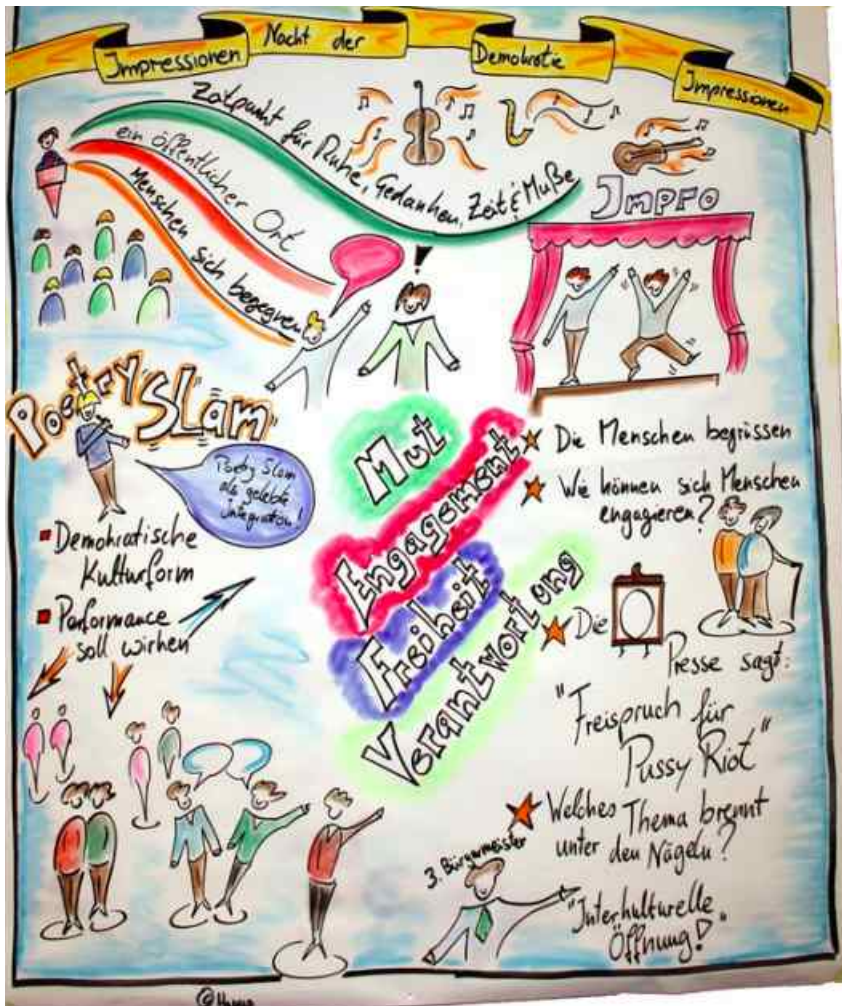 Impressionen Nacht der Demokratie Impressionen
Zeitpunkt für Ruhe, Gedanken, Zeit & Muße
ein öffentlicher Ort
Menschen sich begegnen
!
IMPRO
Poetry SLam
Poetry Slam
als gelebte
integration!
Demokratische
Kulturform
Performance
soll wirken
Mut
Engagement
Freiheit
Verantwortung
Die Menschen begrüssen
Wie können sich Menschen
engagieren?
Die
Presse sagt:
"Freispruch für
Pussy Riot"
Welches Thema brennt
unter den Nägeln?
3. Bürgermeister
"Interkulturelle
Öffnung!"